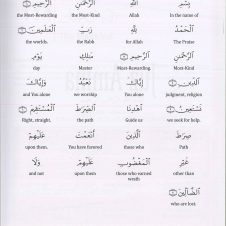 بِسْمِ اللَّهِ الرَّحْمَٰنِ الرَّحِيمِ
In the name of Allah the Most-Kind the Most-Rewarding
الْحَمْدُ لِلَّهِ رَبِّ الْعَالَمِينَ
The Praise for Allah the Rabb the worlds.
الرَّحْمَٰنِ الرَّحِيمِ مَالِكِ يَوْمِ
the Most-Kind Most-Rewarding. Master day
الدِّينِ إِيَّاكَ نَعْبُدُ وَإِيَّاكَ
judgment, religion You alone we worship and You alone
نَسْتَعِينُ اهْدِنَا الصِّرَاطَ الْمُسْتَقِيمَ
we seek for help. Guide us the path Right, straight,
صِرَاطَ الَّذِينَ أَنْعَمْتَ عَلَيْهِمْ
Path who You have favored upon them.
غَيْرِ الْمَغْضُوبِ عَلَيْهِمْ وَلَا
other than those who earned wrath upon them and not
الضَّالِّينَ
who are lost.